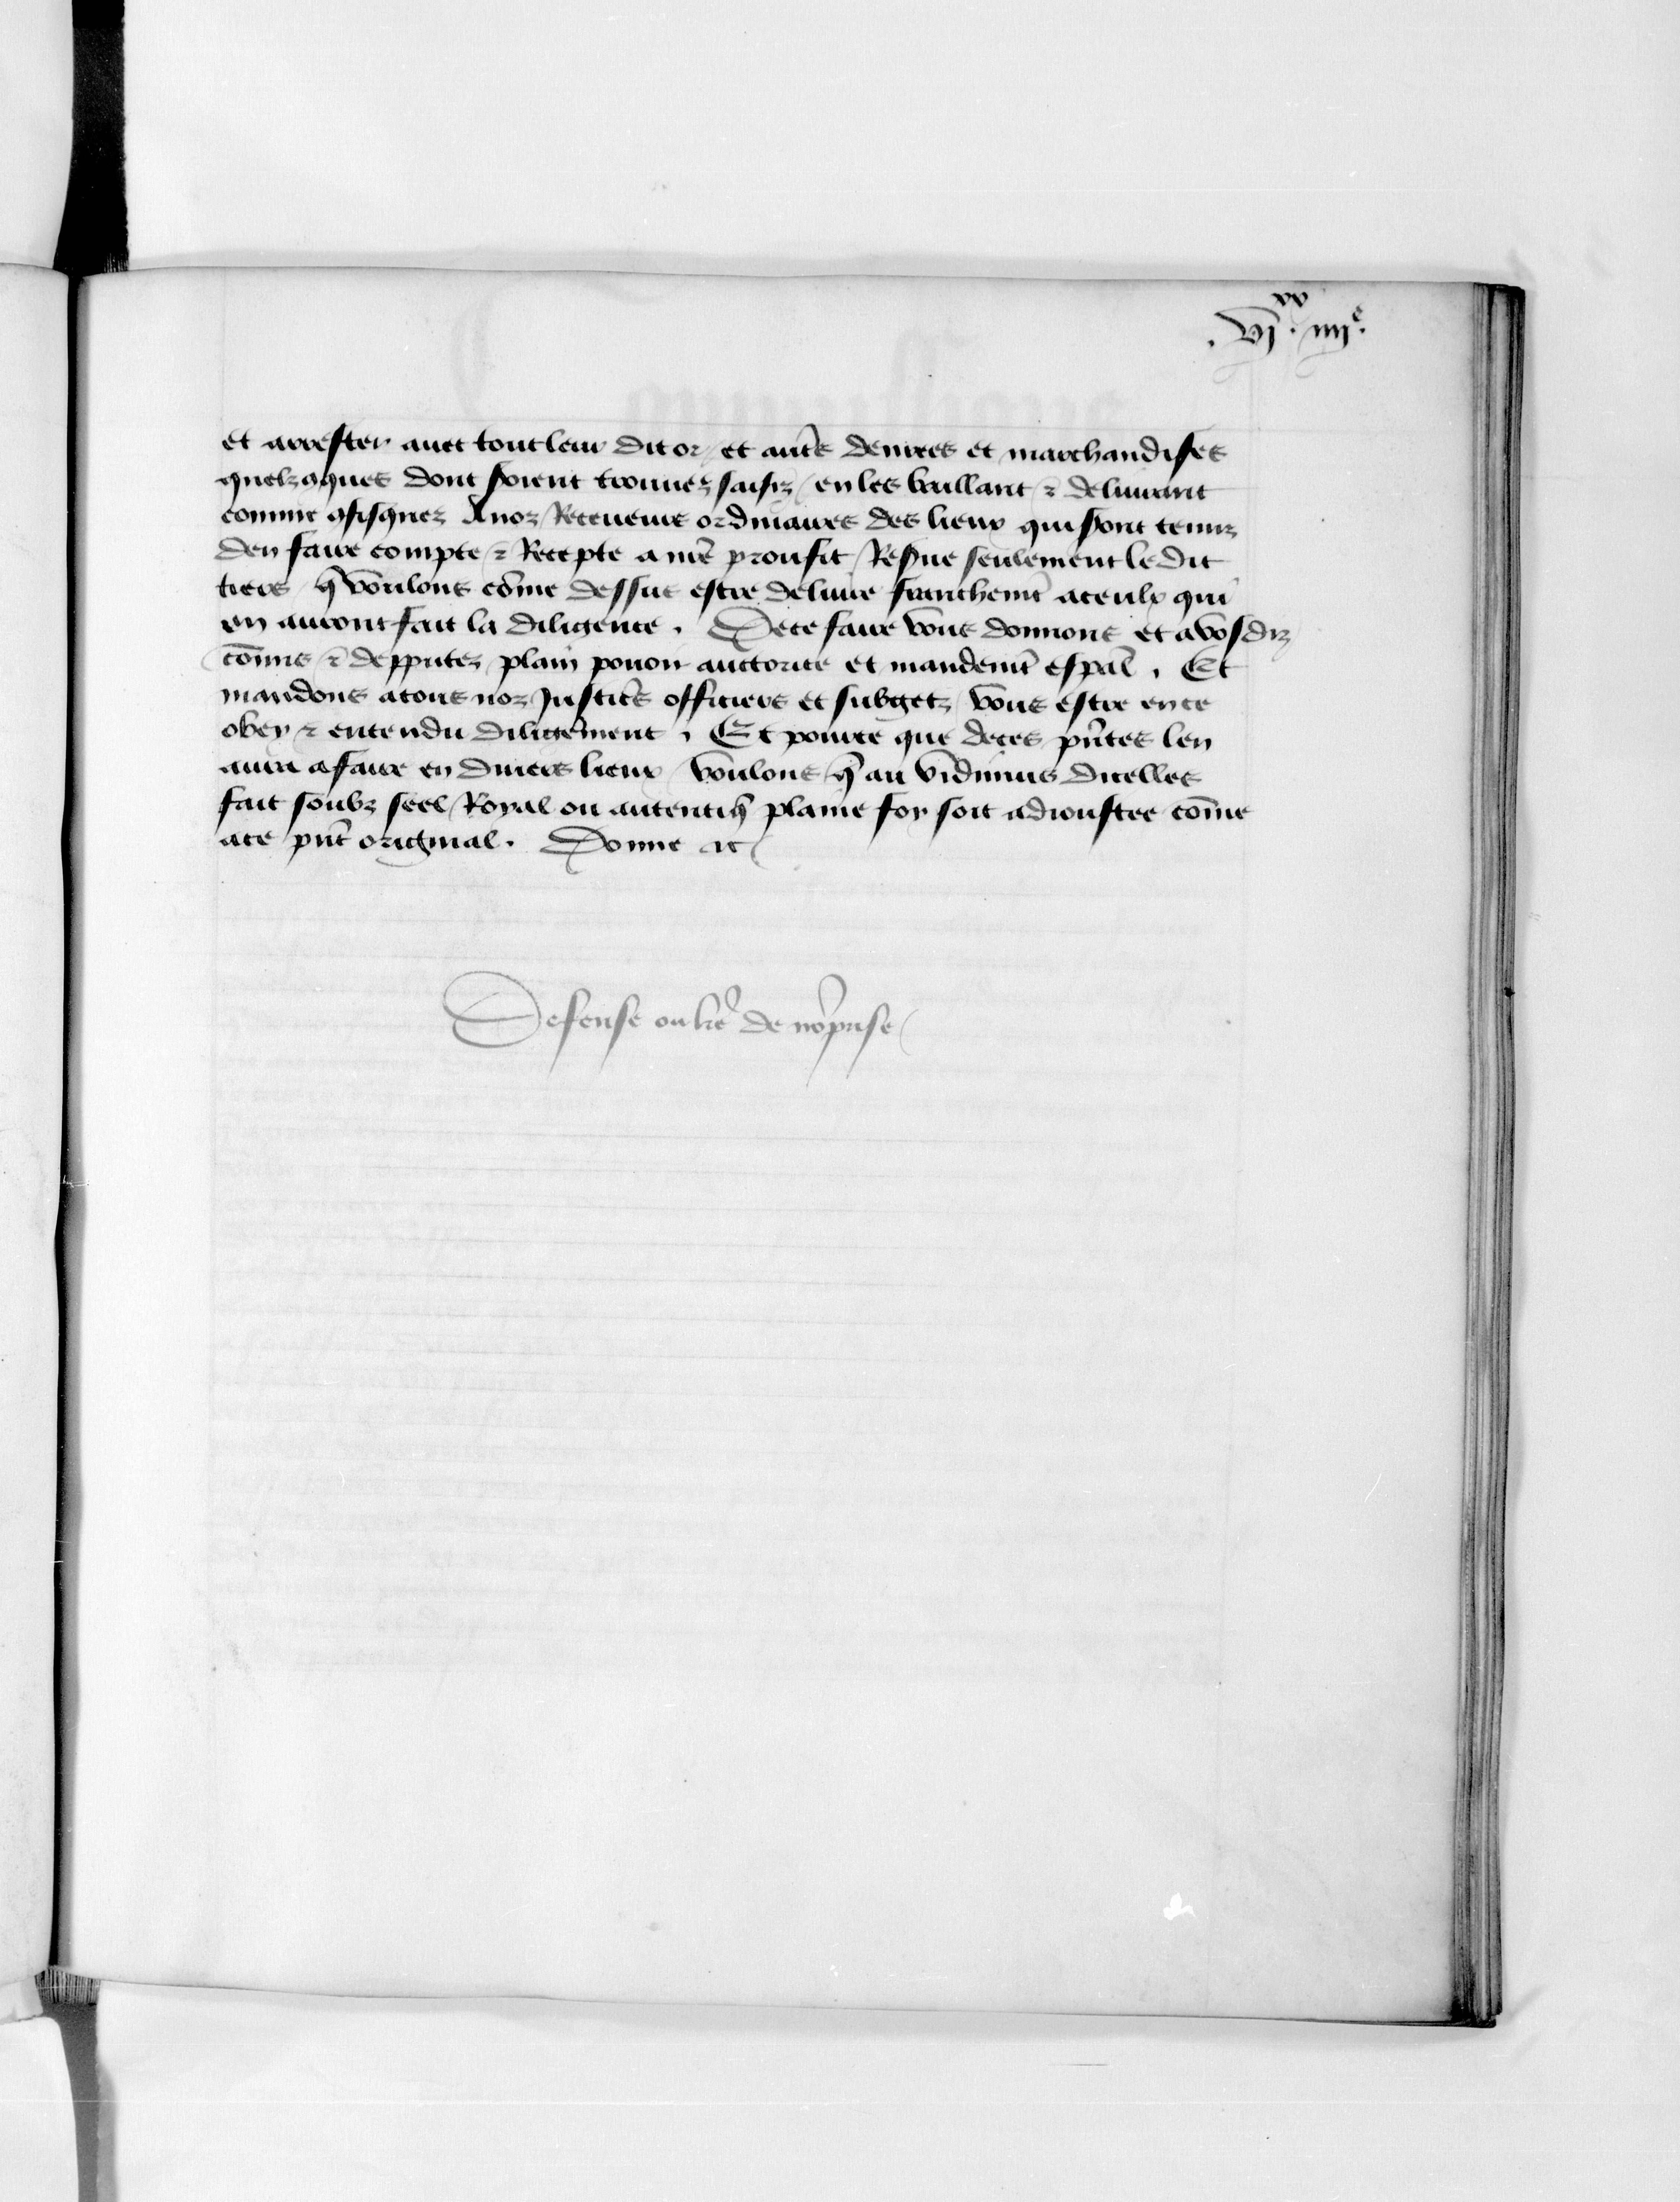 .vjxx. iiije.
et arrester auec tout leur dit or / et autẽs denrees et marchandises
quelzqques dont soient trouuez saisiz / en les baillant ⁊ deliurant
comme qfisquez A noz Receueurs ordinaires des lieux qui sont tenuz
den faire compte ⁊ Recepte a nrẽ proufit / Resue seulement le dit
tiers / q̃ voulons cõme dessus estre deliure franchemt̃ a ceulx qui
en auront fait la diligence . De ce faire vous donnons et a vosdiz
cõmis ⁊ depputez plain pouoir auctorite et mandemt̃ espãl . Et
mandons a tous noz Justicẽs officiers et subgetz vous estre en ce
obey ⁊ entendu diligẽment . Et pource que de ces pñtes len
aura a faire en diuers lieux / voulons q̃ au vidimus dicelles
fait soubz seel Royal ou autentiq̃ plaine foy soit adioustee cõme
a ce pñt original . Donne ⁊c
Defense ou lrẽ de nõ prise